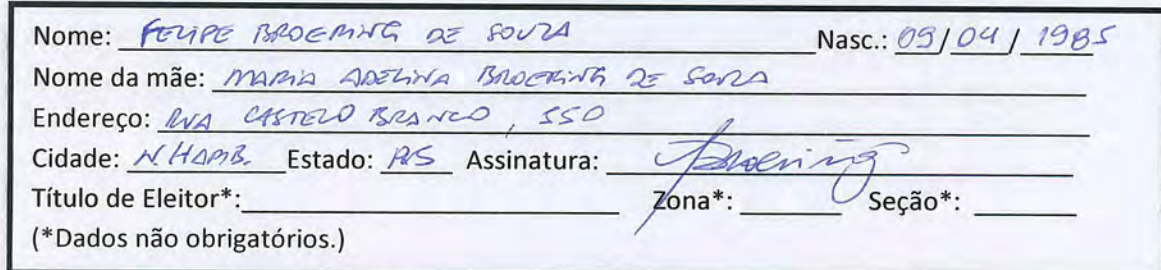 Nome: FELIPE BROERING DE SOUZA Nasc.: 09/04/1985
Nome da mãe: MARIA ADELINA BROERING DE SOUZA
Endereço: RUA CASTELO BRANCO, 550
Cidade: N HAMB. Estado: RS Assinatura: Broering
Título de Eleitor*: Zona*: Seção*:
(*Dados não obrigatórios.)